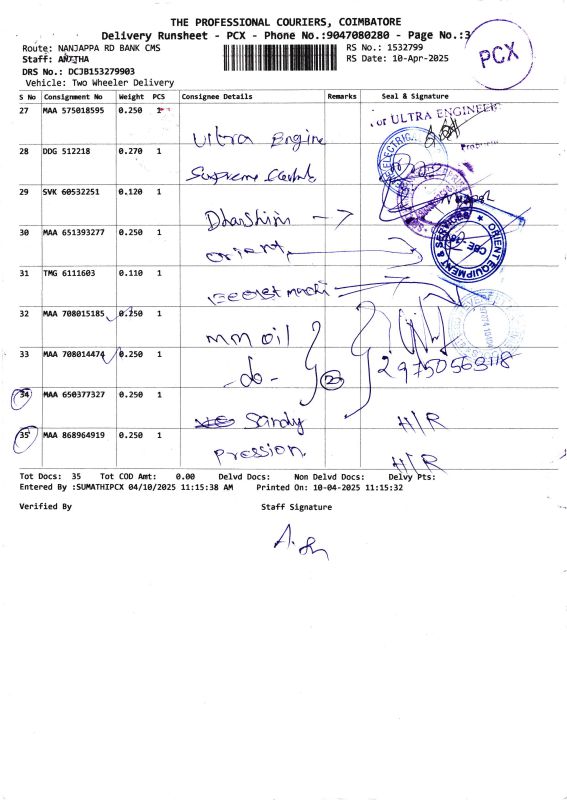 THE PROFESSIONAL COURIERS, COIMBATORE
Delivery Runsheet - PCX - Phone No.:9047080280 - Page No.:3
PCX
Route: NANJAPPA RD BANK CMS
RS No.: 1532799
Staff: ANITHA
RS Date: 10-Apr-2025
DRS No.: DCJB153279903
Vehicle: Two Wheeler Delivery
S No Consignment No Weight PCS Consignee Details Remarks Seal & Signature
27 MAA 575018595 0.250 1 Ultra Engine
For ULTRA ENGINEER
28 DDG 512218 0.270 1 Supreme
29 SVK 60532251 0.120 1 Dharshini
30 MAA 651393277 0.250 1 orient
ORIENT EQUIPMENT & SERVICES CBE
31 TMG 6111603 0.110 1
32 MAA 708015185 0.250 1 mm oil
33 MAA 708014474 0.250 1 -do- 2 9750563118
34 MAA 650377327 0.250 1 Sandy H/R
35 MAA 868964919 0.250 1 Pression H/R
Tot Docs: 35 Tot COD Amt: 0.00 Delvd Docs: Non Delvd Docs: Delvy Pts:
Entered By :SUMATHIPCX 04/10/2025 11:15:38 AM Printed On: 10-04-2025 11:15:32
Verified By Staff Signature